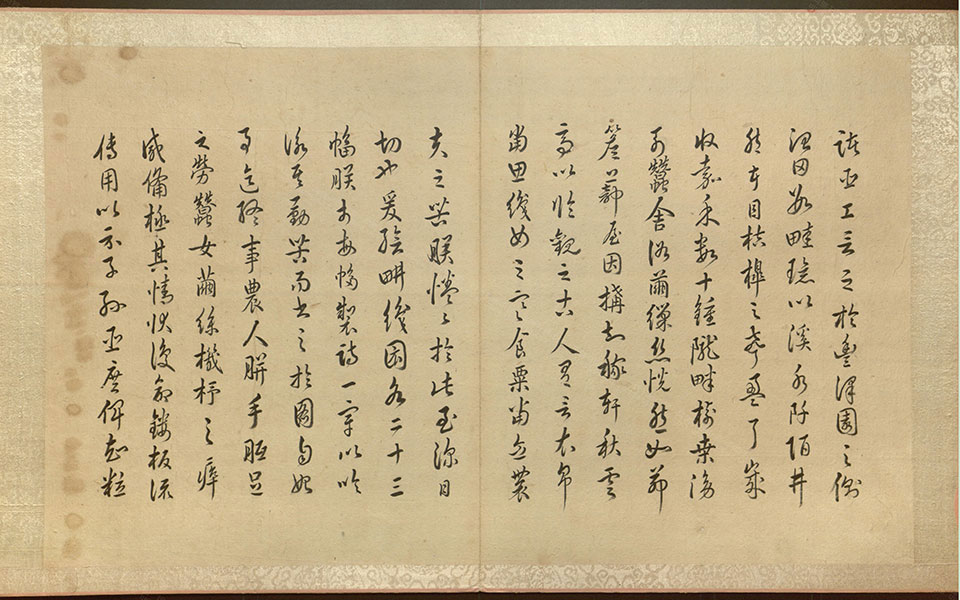 諸臣工言之於豐澤園之側
治田數畦環以溪水阡陌井
然在目桔槹之聲盈耳歲
收嘉禾數十鍾隴畔樹桑傍
列蠶舍浴繭繅絲恍然如茆
簷蔀屋因構知稼軒秋雲
亭以臨觀之古人有言衣帛
當思織女之寒食粟當念農
夫之苦朕惓〻於此至深且
切也爰繪畊織圖各二十三
幅朕於每幅製詩一章以吟
詠其勤苦而書之於圖自始
事迄終事農人胼手胝足
之勞蠶女繭絲機杼之瘁
咸備極其情狀復命鏤板流
傳用以示子孫臣庶俾知粒